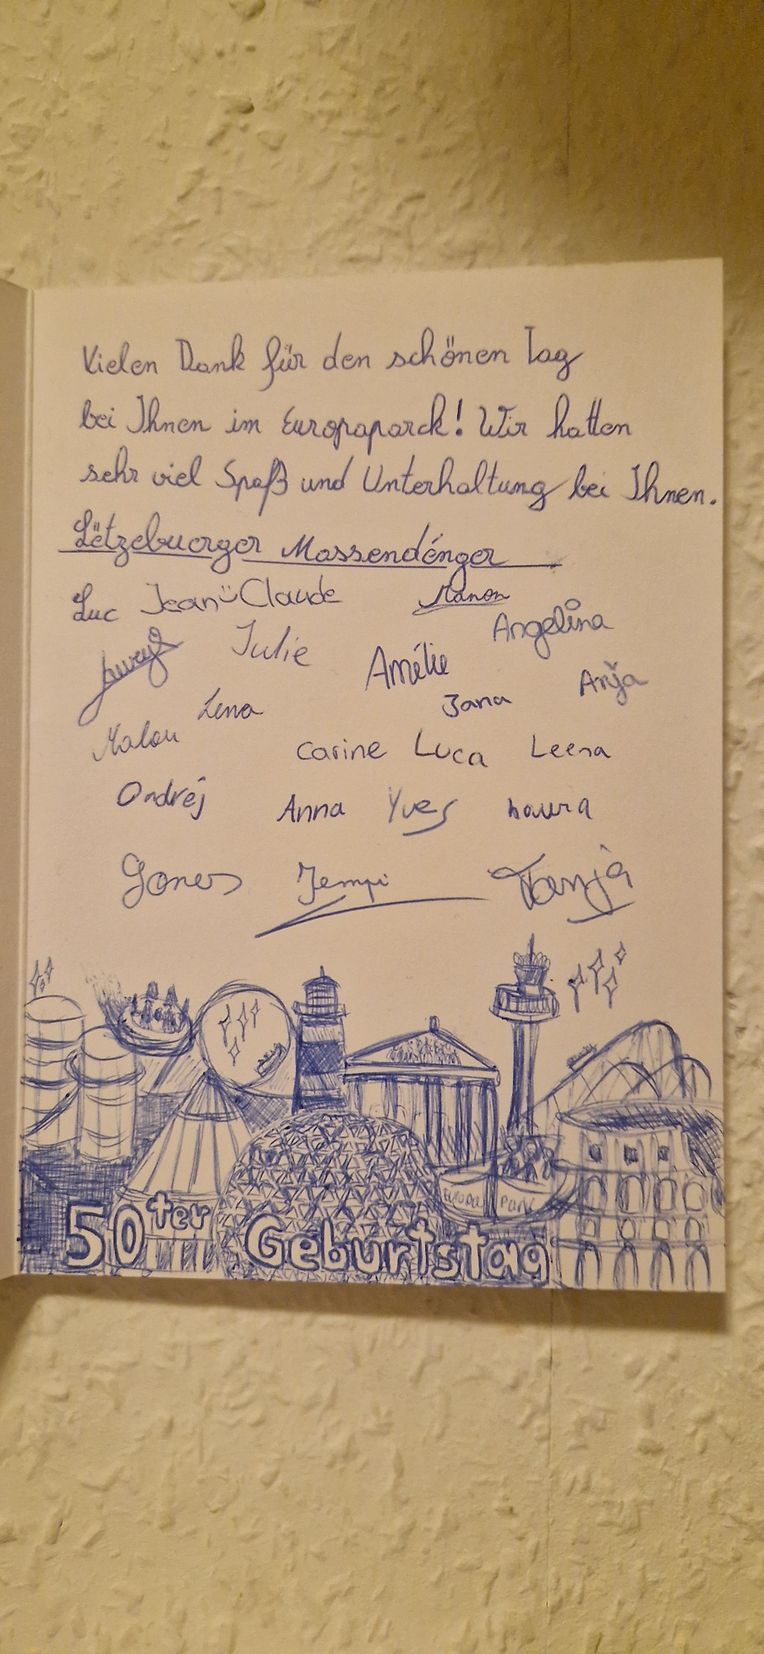 Vielen Dank für den schönen Tag
bei Ihnen im Europaparck! Wir hatten
sehr viel Spaß und Unterhaltung bei Ihnen.
Lëtzebuerger Massendénger
Luc Jean Claude Manon
Julie Amélie Angelina
Lena Jana Anja
Malou Carine Luca Leena
Ondréj Anna Yves Laura
Jempi Tanja
Europa Park
50ter Geburtstag